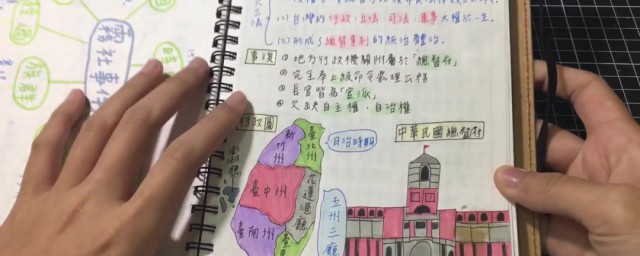 霧社事件
族群
(2) 台灣的行政、立法、司法、軍事大權於一生
(3) 形成了總督專制的統治體治.
事項
① 地方行政機關附屬於「總督府」
② 完全奉上級命令處理公務
③ 長官皆為「官派」
④ 欠缺自主權、自治權
行政圖
自治時期
中華民國總督府
臺北州
新竹州
臺中州
花蓮港廳
臺南州
五州三廳